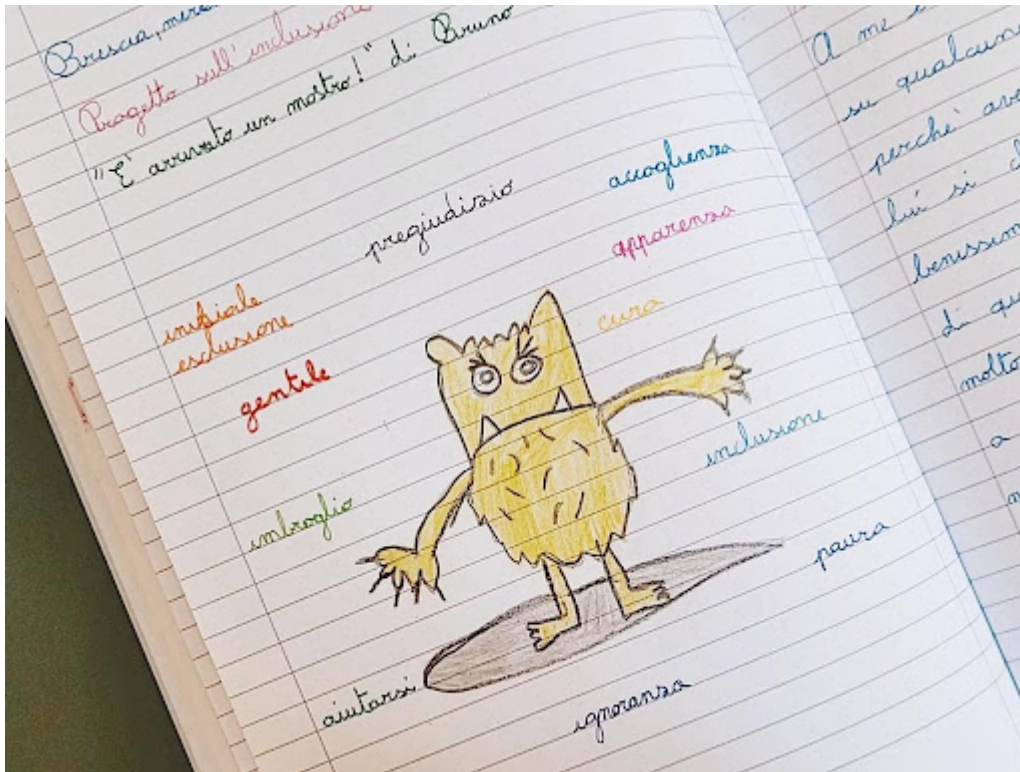 Brescia,
Progetto sull'inclusione
"È arrivato un mostro!" di Bruno
pregiudizio
accoglienza
apparenza
iniziale
esclusione
cura
gentile
inclusione
imbroglio
paura
aiutarsi
ignoranza
A me
su qualcuno
perchè
lui si
benissimo
di
molto
a